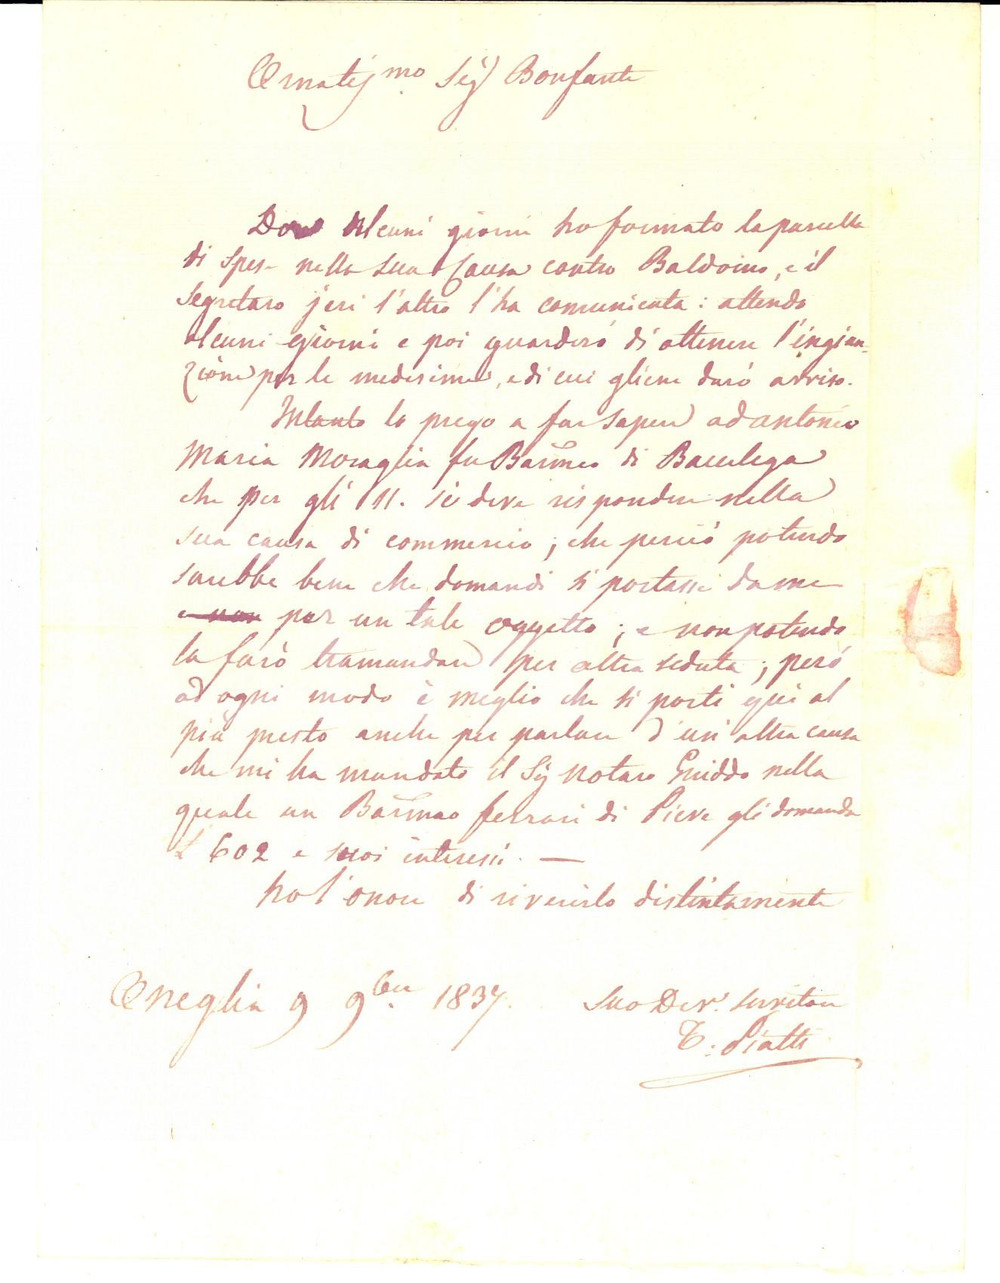 Ornatis.mo Sig.r Bonfante
Da alcuni giorni ho formato la parcella
di Spese nella sua Causa contro Baldoino, e il
Segretaro jeri l'altro l'ha comunicata: attendo
alcuni giorni e poi guarderó di ottenere l'ingiun-
zione per le medesime, e di cui gliene daró avviso.
Intanto la prego a far sapere ad Antonio
Maria Moraglia fu Barmeo di Bacelega
che per gli 11. si deve rispondere nella
sua causa di commercio; che perció potendo
sarebbe bene che domandi si portasse da me
per un tale oggetto; e non potendo
la faró tramandare per altra seduta; peró
ad ogni modo è meglio che si porti qui al
più presto anche per parlare d'un'altra causa
che mi ha mandato il Sig Notaro Guiddo nella
quale un Barmeo Ferrari di Pieve gli domanda
£ 602 e suoi interessi. —
Ho l'onore di riverirlo distintamente
Oneglia 9 9bre 1837.
Suo Dev.o servitore
T. Piatti